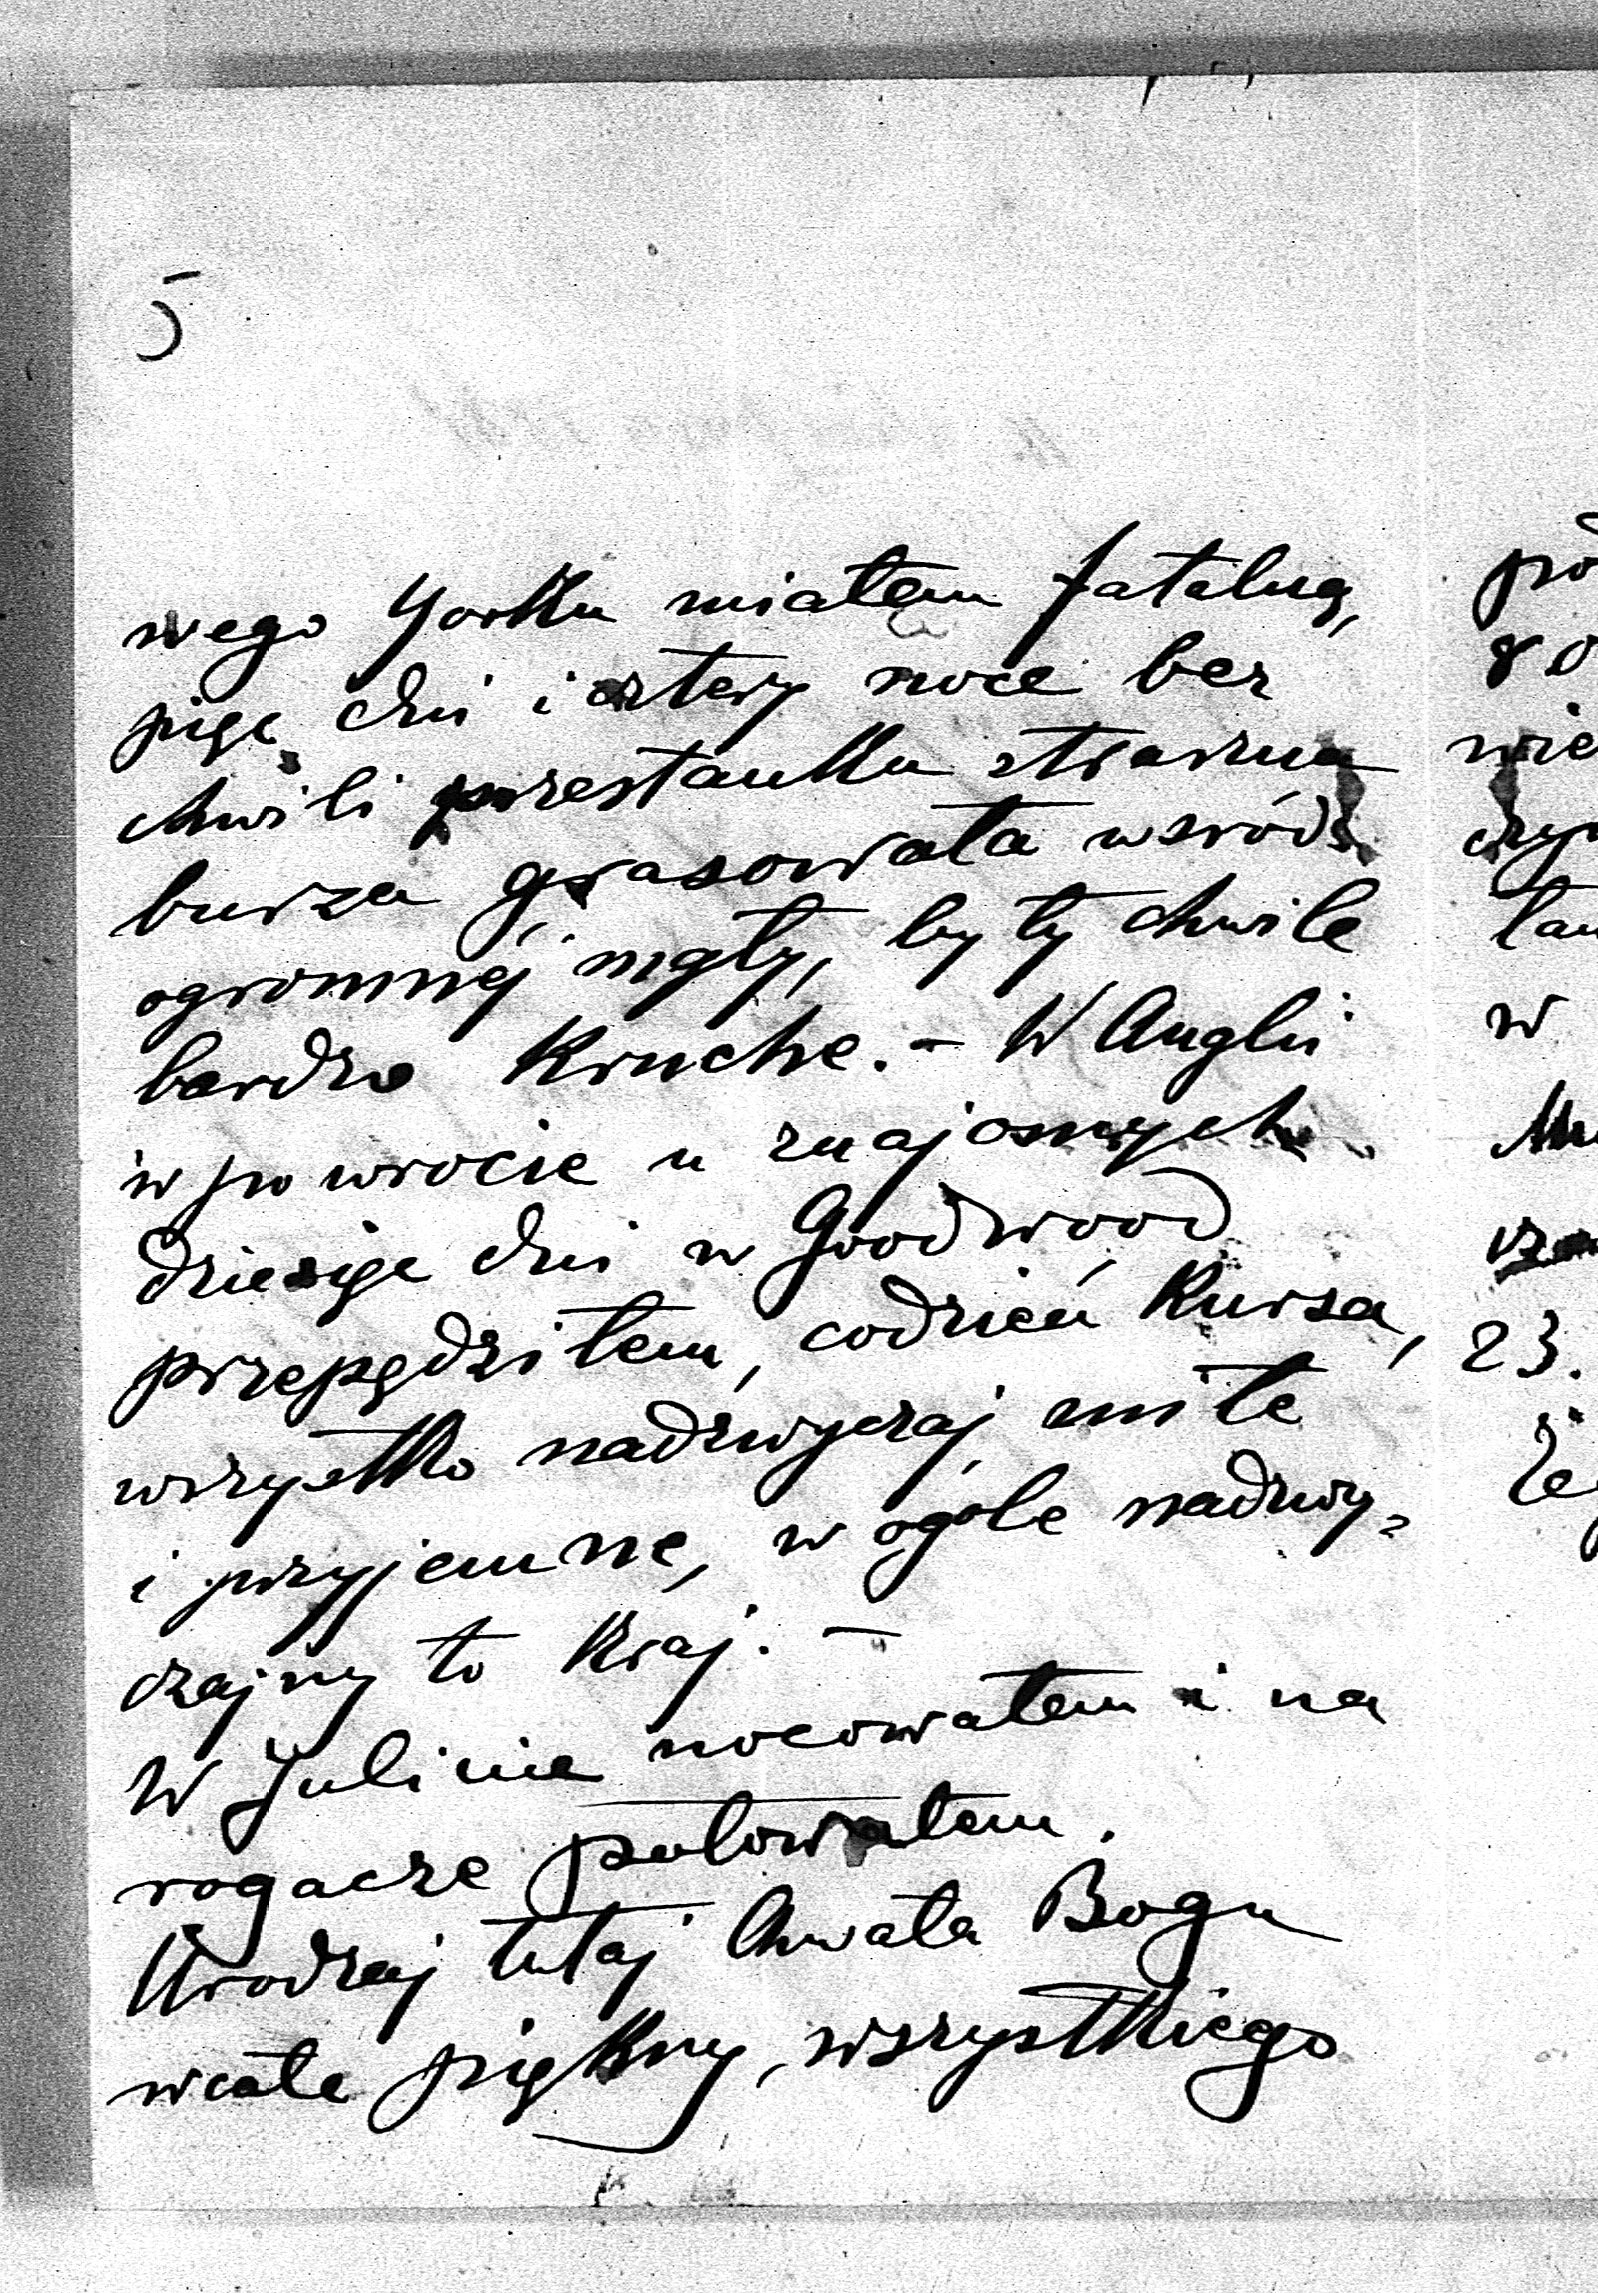 5
wego Yorku miałem fatalną,
pięć dni i cztery noce bez
chwili przestanku straszna
burza grasowała wsród
ogromnéj mgły, były chwile
bardzo kruche. – W Anglii
w powrocie u znajomych
dziesięć dni w Goodwood
przepędziłem, codzień Kursa,
wszystko nadzwyczaj miłe
i przyjemne, w ogole nadzwy-
czajny to Kraj. –
W Julinie nocowałem i na
rogacze polowałem.
Urodzaj tutaj Chwała Bogu
wcale piękny, wszystkiego
80
w
23.